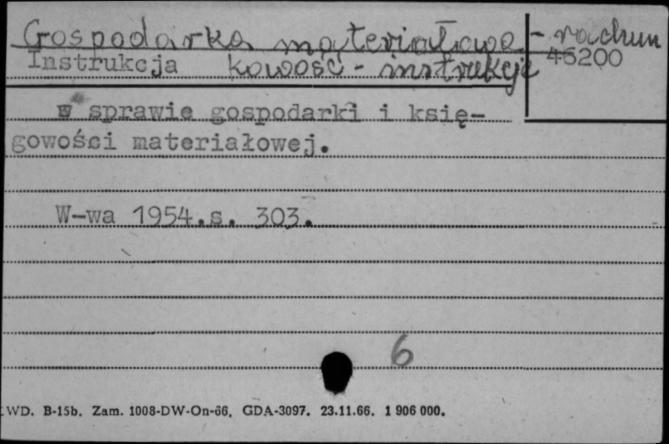 Gospodarka materiałowa - rachun
Instrukcja kowość - instrukcje 46200
w sprawie gospodarki i księ-
gowości materiałowej.
W-wa 1954.s. 303.
6
WD. B-15b. Zam. 1008-DW-On-66. GDA-3097. 23.11.66. 1 906 000.